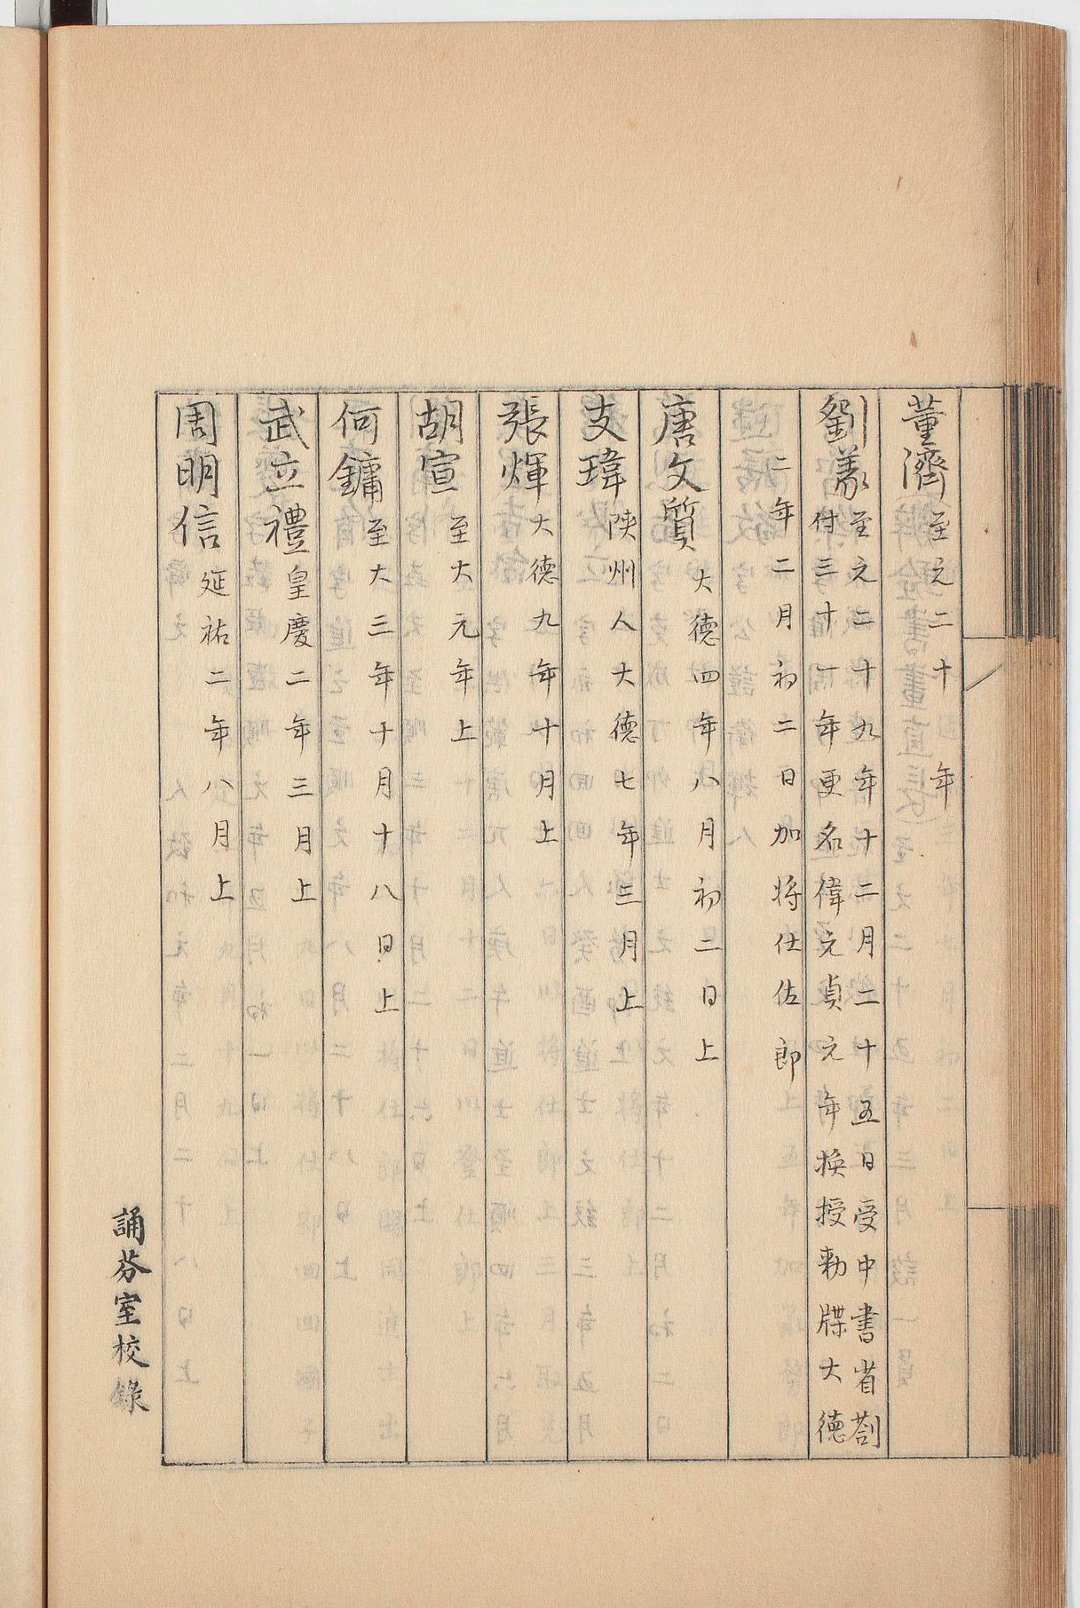 董濟至元二十年
劉義至元二十九年十二月二十五日受中書省劄
付三十一年更名偉元貞元年換授勅牒大德
二年二月初二日加將仕佐郎
唐文質大德四年八月初二日上
支瑋陝州人大德七年三月上
張煇大德九年十月上
胡宣至大元年上
何鏞至大三年十月十八日上
武立禮皇慶二年三月上
周明信延祐二年八月上
誦芬室校錄